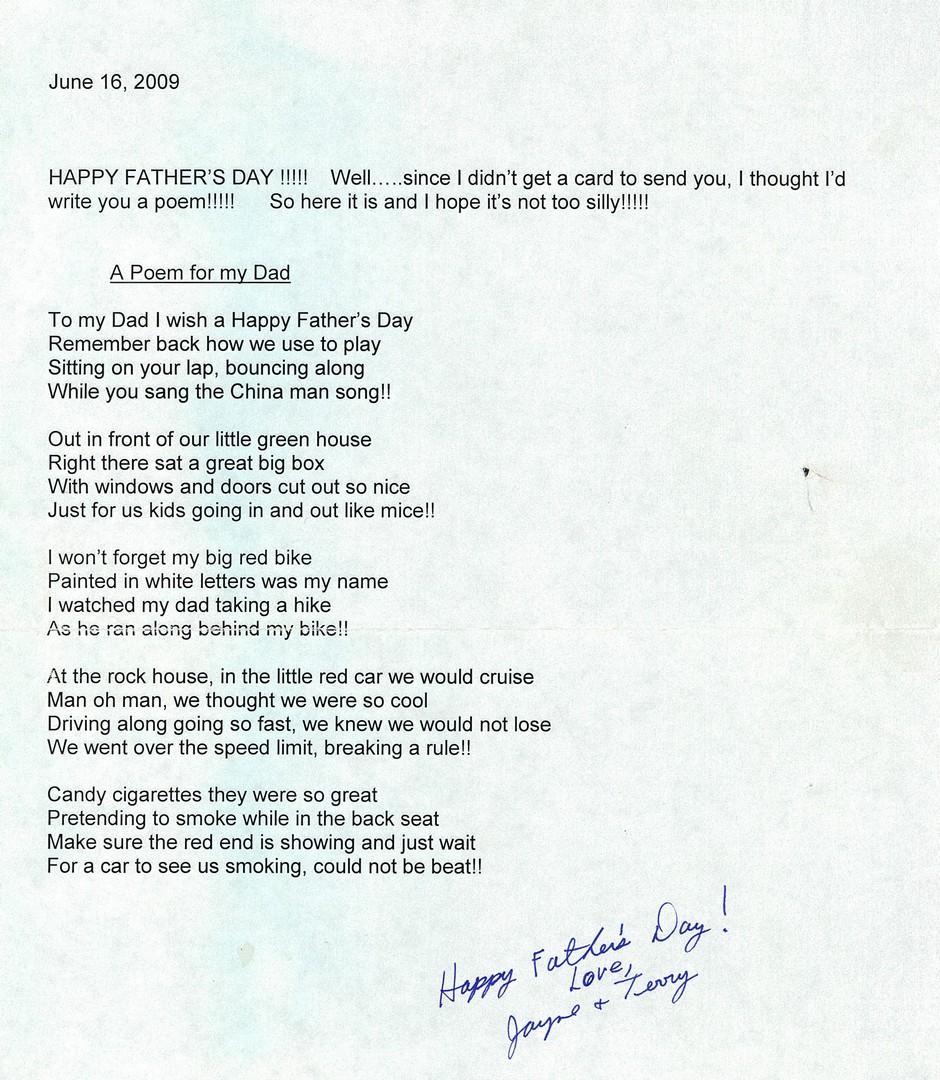 June 16, 2009
HAPPY FATHER'S DAY !!!!! Well…..since I didn't get a card to send you, I thought I'd
write you a poem!!!!! So here it is and I hope it's not too silly!!!!!
A Poem for my Dad
To my Dad I wish a Happy Father's Day
Remember back how we use to play
Sitting on your lap, bouncing along
While you sang the China man song!!
Out in front of our little green house
Right there sat a great big box
With windows and doors cut out so nice
Just for us kids going in and out like mice!!
I won't forget my big red bike
Painted in white letters was my name
I watched my dad taking a hike
As he ran along behind my bike!!
At the rock house, in the little red car we would cruise
Man oh man, we thought we were so cool
Driving along going so fast, we knew we would not lose
We went over the speed limit, breaking a rule!!
Candy cigarettes they were so great
Pretending to smoke while in the back seat
Make sure the red end is showing and just wait
For a car to see us smoking, could not be beat!!
Happy Father's Day!
Love,
Jayne + Terry